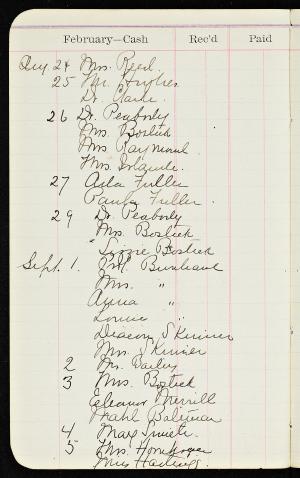 February—Cash Rec'd Paid
Aug 24 Mrs. Reed
25 Mr. Hughes
Dr.
26 Dr. Peabody
Mrs. Bostick
Mrs Raymond
Mrs.
27 Ada Fuller
Paula Fuller.
29 Dr. Peabody
Mrs. Bostick
" Lizzie Bostick
Sept. 1. Burnham
Mrs. "
Anna "
Louise "
Deacon Skinner
Mrs. Skinner
2
3 Mrs. Bostick
Eleanor Merrill
4 Max
5 Mrs.
Miss Hastings.